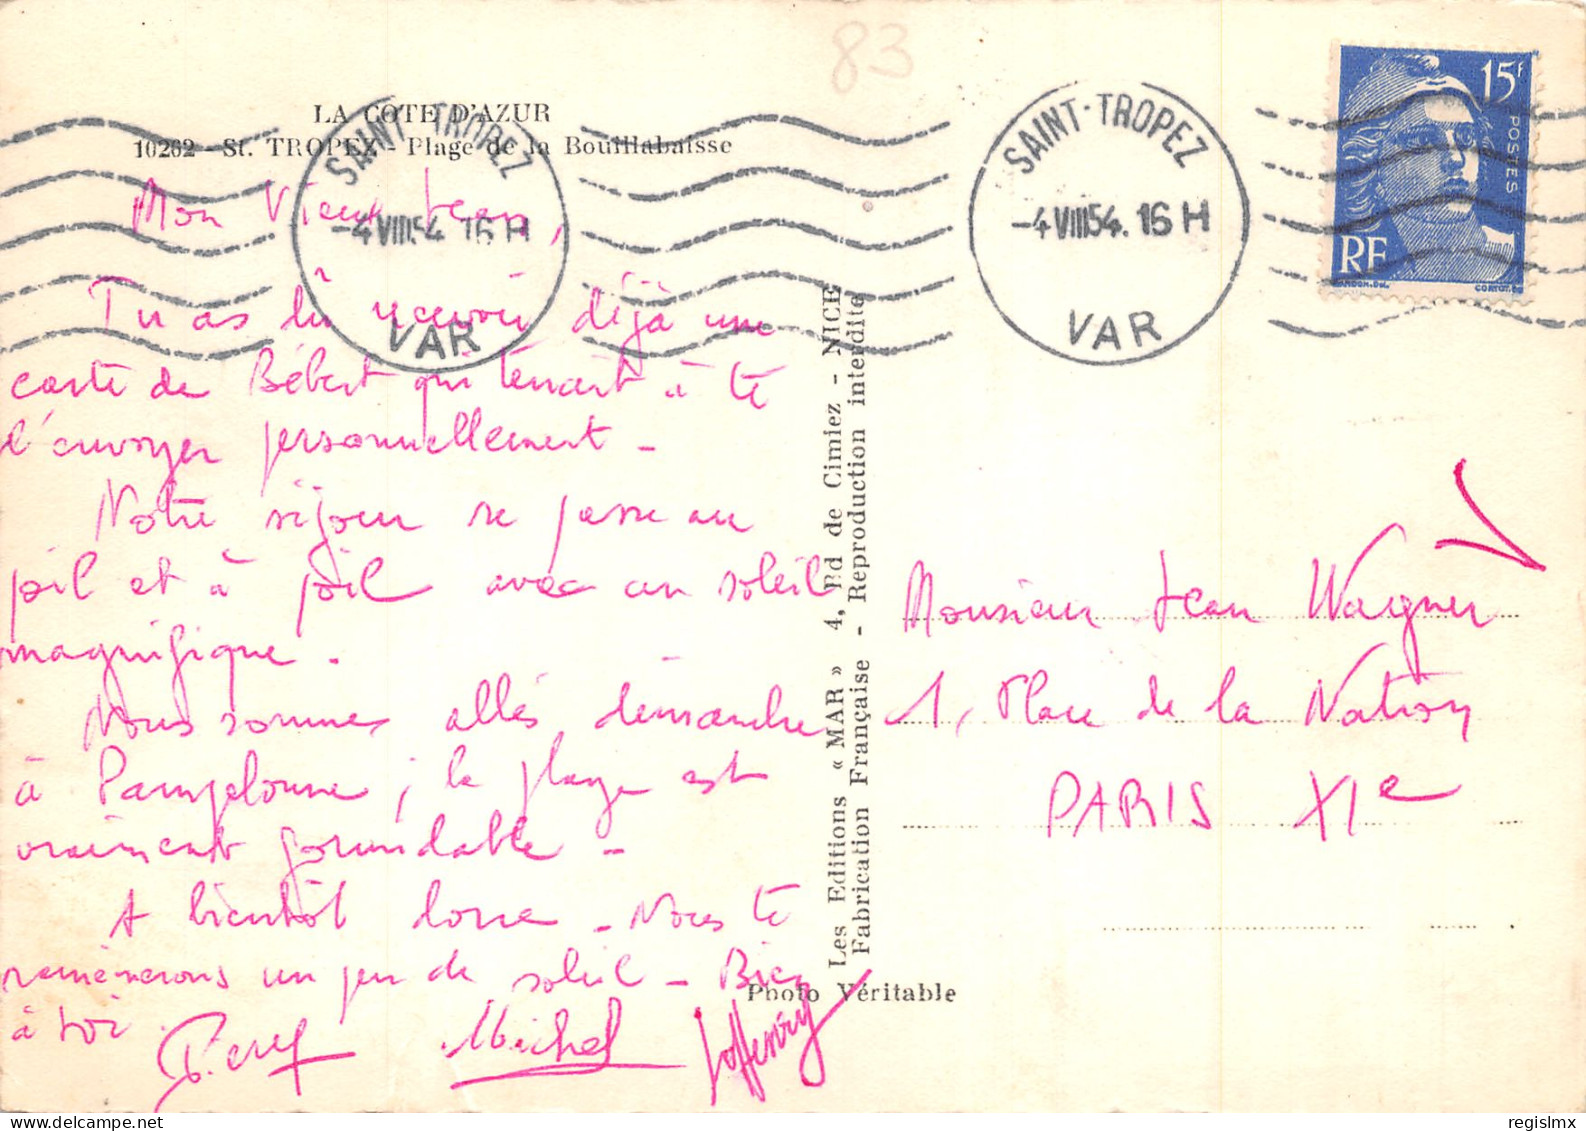 83
LA COTE D'AZUR
10262 - St. TROPEZ - Plage de la Bouillabaisse
SAINT-TROPEZ
-4 VIII 54. 16 H
VAR
SAINT-TROPEZ
-4 VIII 54. 16 H
VAR
15F
POSTES
RF
Mon Vieux Jean,
Tu as dû recevoir déjà une
carte de Bébert qui tenait à te
l'envoyer personnellement -
Notre séjour se passe au
pil et à poil avec un soleil
magnifique.
Nous sommes allés dimanche
à Pampelonne ; la plage est
vraiment formidable -
A bientôt donc - Nous te
ramènerons un peu de soleil - Bien
à toi.
Michel
Les Editions « MAR » 4, Bd de Cimiez - NICE
Fabrication Française - Reproduction interdite
Photo Véritable
Monsieur Jean Wagner
1, Place de la Nation
PARIS XIe
regislmx